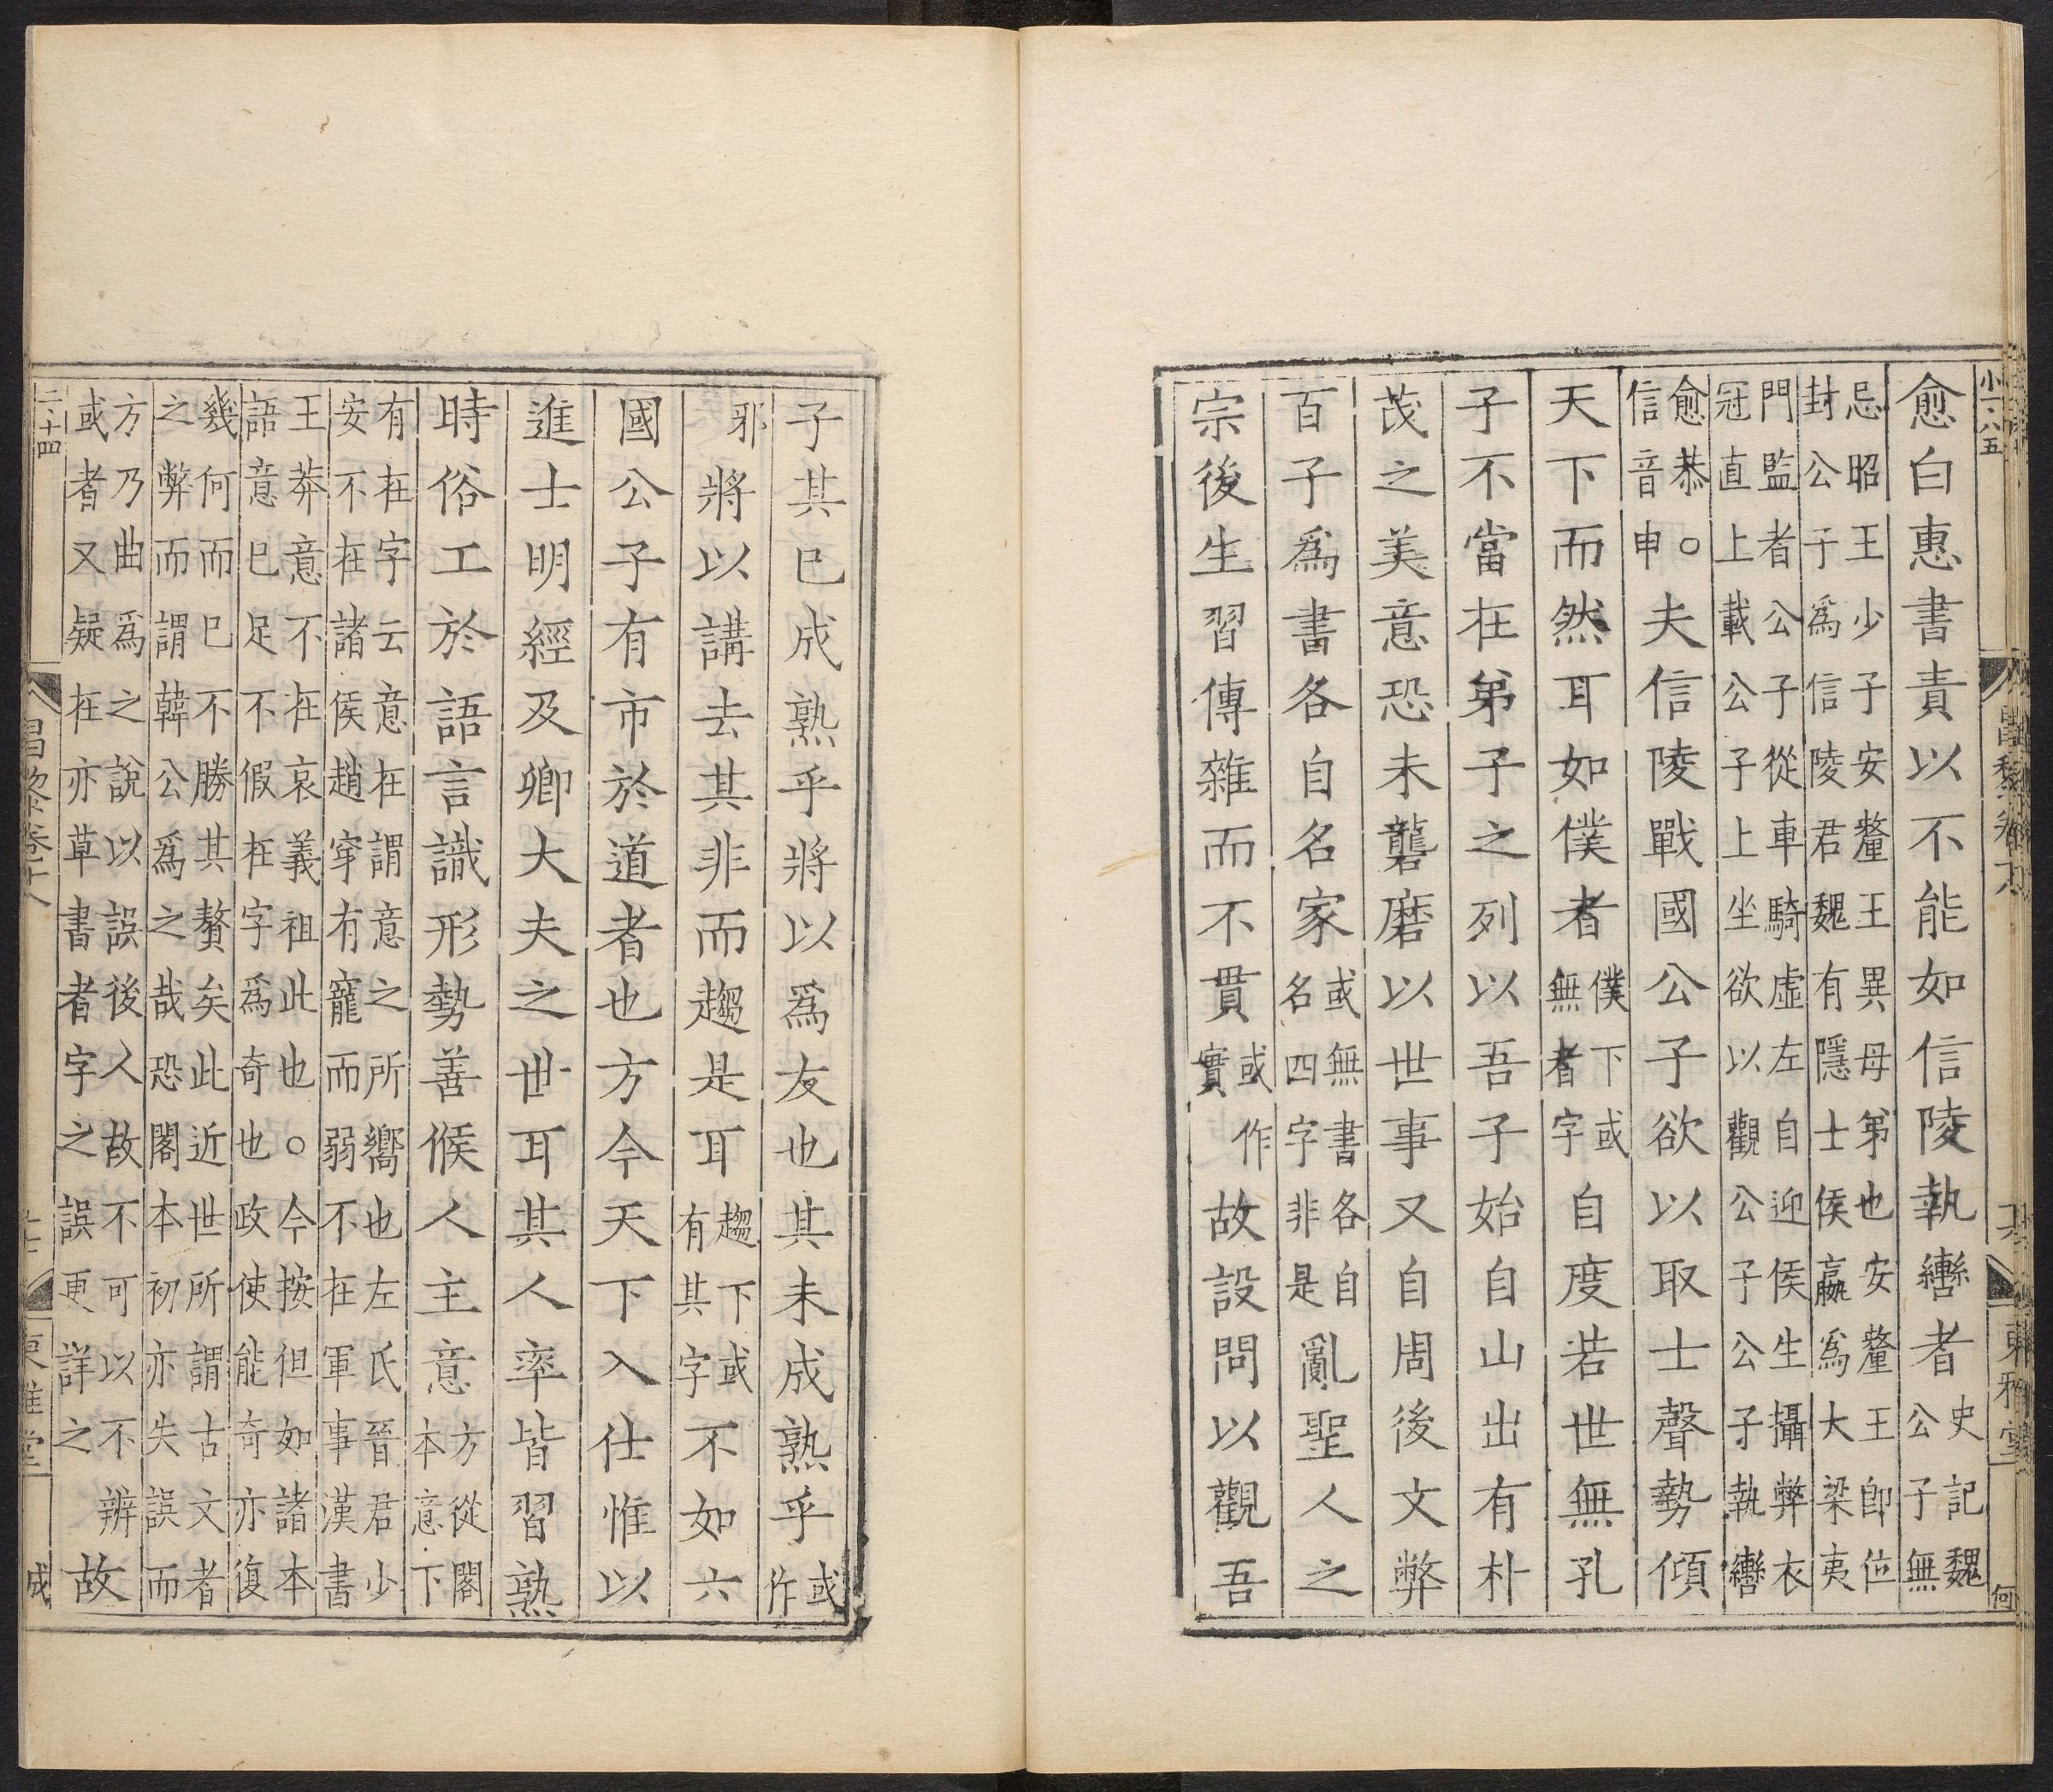 小一八五
昌黎卷十八
東雅堂
何
愈白惠書責以不能如信陵執轡者史記魏公子無
忌昭王少子安釐王異母第也安釐王即位封公子爲信陵君魏有隱士侯嬴爲大梁夷
門監者公子從車騎虛左自迎侯生攝弊衣冠直上載公子上坐欲以觀公子公子執轡
愈恭○信音申夫信陵戰國公子欲以取士聲勢傾
天下而然耳如僕者僕下或無者字自度若世無孔
子不當在第子之列以吾子始自山出有朴
茂之美意恐未礱磨以世事又自周後文弊
百子爲書各自名家或無書各自名四字非是亂聖人之
宗後生習傳雜而不貫或作實故設問以觀吾
子其巳成熟乎將以爲友也其未成熟乎或作
邪將以講去其非而趨是耳趨下或有其字不如六
國公子有市於道者也方今天下入仕惟以
進士明經及卿大夫之世耳其人率皆習熟
時俗工於語言識形勢善候人主意方從閣本意下
有在字云意在謂意之所嚮也左氏晉君少安不在諸侯趙穿有寵而弱不在軍事漢書
王莽意不在哀義祖此也○今按但如諸本語意巳足不假在字爲奇也政使能奇亦復
幾何而巳不勝其贅矣此近世所謂古文者之弊而謂韓公爲之哉恐閣本初亦失誤而
方乃曲爲之說以誤後人故不可以不辨或者又疑在亦草書者字之誤更詳之故
二十四
昌黎卷十八
東雅堂
成